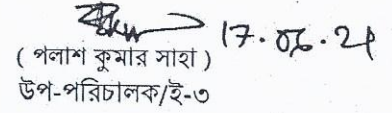 17.06.21
( পলাশ কুমার সাহা )
উপ-পরিচালক/ই-৩